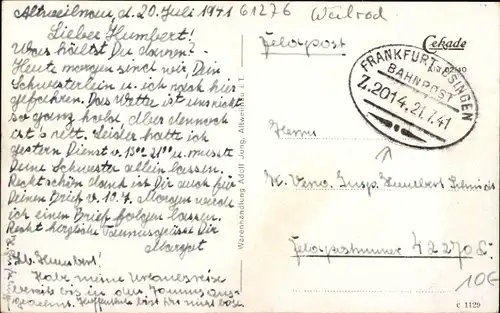 Altweilnau d. 20. Juli 1941
61276 Weilrod
Lieber Humbert!
Was hältst Du davon?
Heute morgen sind wir, Dein
Schwesterlein u. ich nach hier
gefahren. Das Wetter ist uns nicht
so ganz hold, aber dennoch
ist es nett. Leider hatte ich
gestern Dienst v. 13⁰⁰-21⁰⁰ u. musste
Deine Schwester allein lassen.
Recht schön dank ich Dir auch für
Deinen Brief v. 10.7. Morgen werde
ich einen Brief folgen lassen.
Recht herzliche Taunusgrüsse Dir
Margot
Lb. Humbert!
Habe meine Urlaubsreise
bereits bis in den Taunus
Hoffentlich bist Du nicht böse
Warenhandlung Adolf Jung, Altweilnau i. T.
Feldpost
Cekade
FRANKFURT-USINGEN
BAHNPOST
Z.2014. 21.7.41
Herrn
Humbert
Feldpostnummer 42270
10€
C 1129